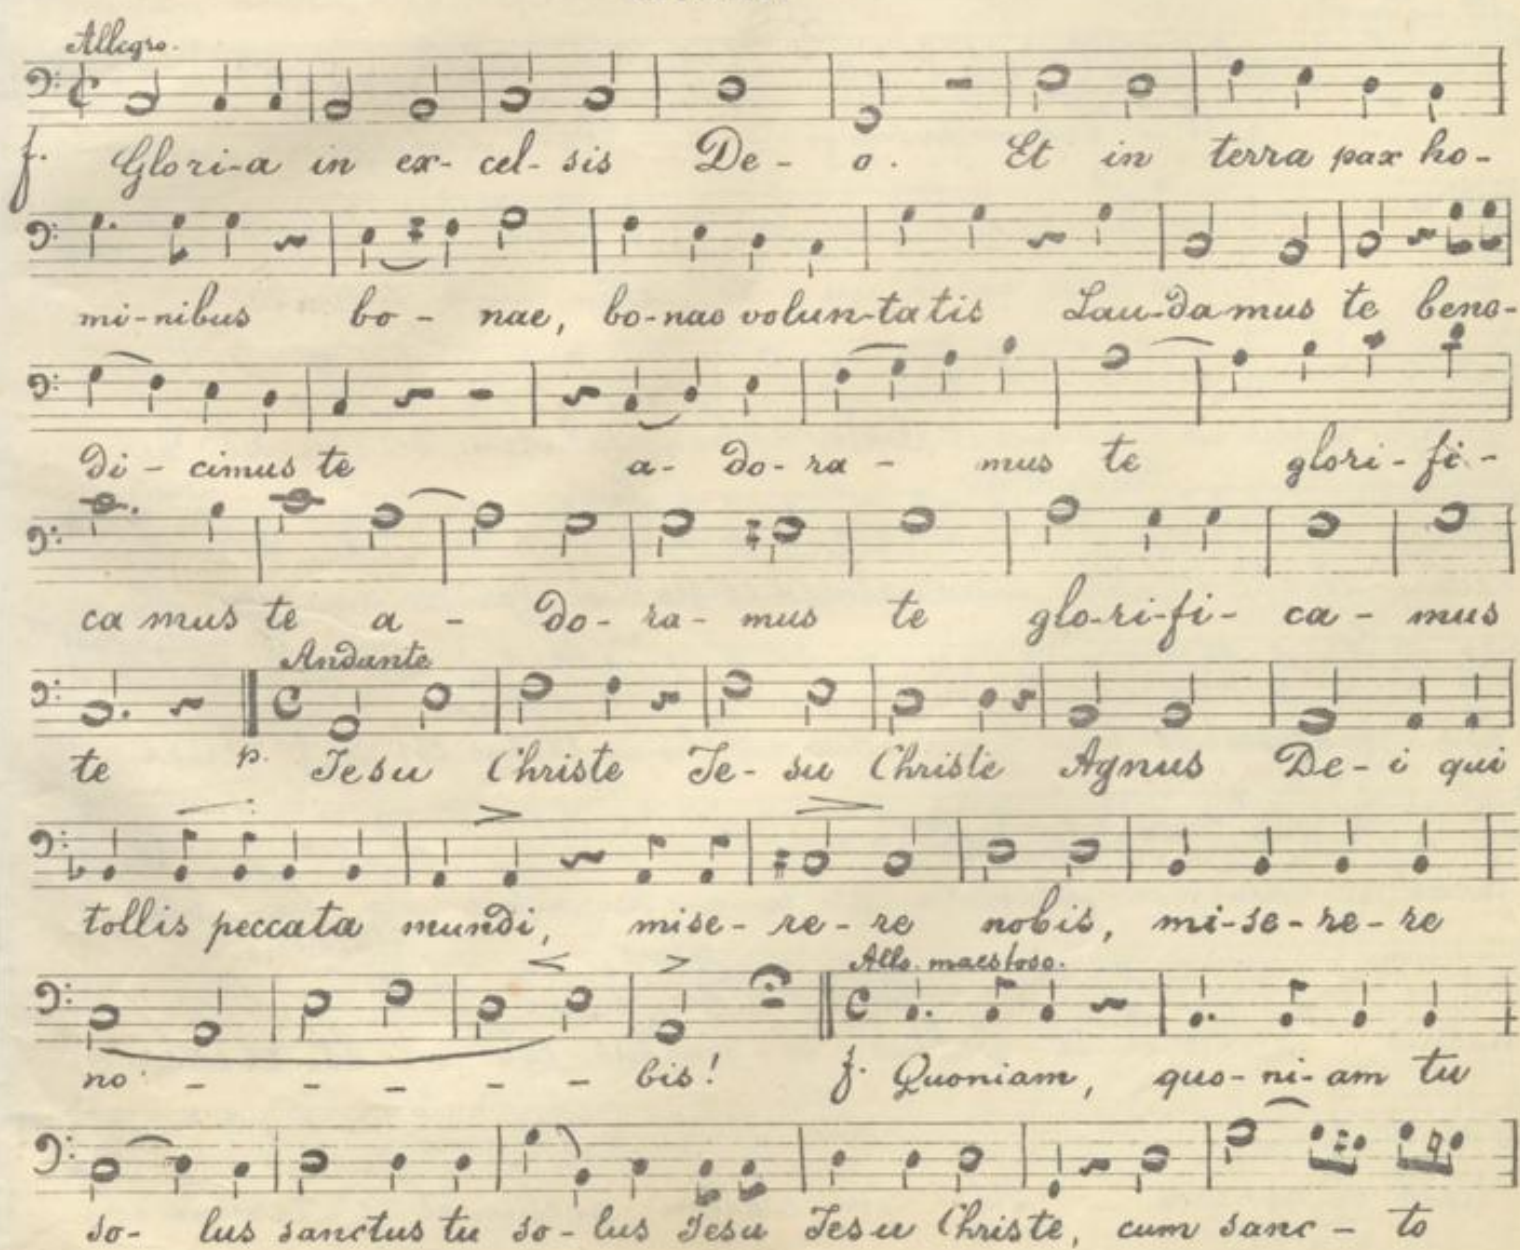 Allegro.
f. Glori-a in ex- cel- sis De- o. Et in terra pax ho-
mi-nibus bo- nae, bo-nae volun-ta tis Lau-da mus te bene-
di- cimus te a- do- ra- mus te glori- fi-
ca mus te a- do- ra- mus te glo-ri-fi- ca- mus
Andante
te p. Jesu Christe Je- su Christe Agnus De- i qui
tollis peccata mundi, mise- re- re nobis, mi-se-re-re
Allo. maestoso.
no - - - - - bis! f. Quoniam, quo-ni-am tu
so- lus sanctus tu so- lus Jesu Jesu Christe, cum sanc- to